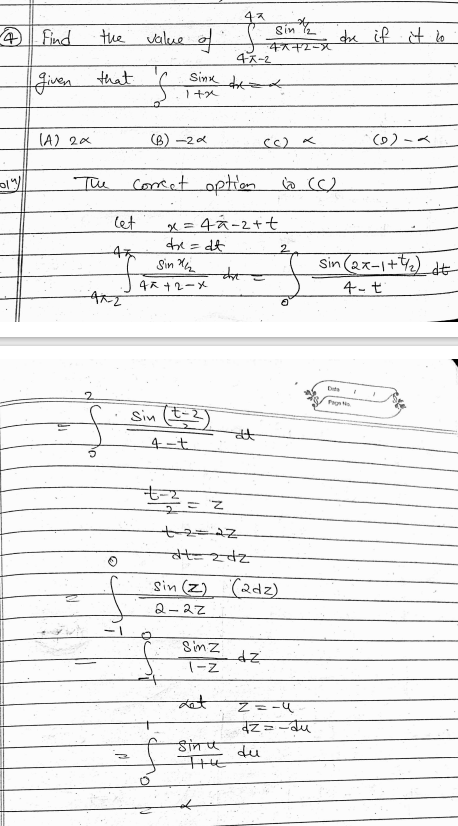 ④ Find the value of ∫_{4π-2}^{4π} (sin x/2)/(4π+2-x) dx if it is
given that ∫_0^1 (sinx)/(1+x) dx = α
(A) 2α (B) -2α (C) α (D) -α
The correct option is (C)
let x = 4π-2+t
dx = dt
∫_{4π-2}^{4π} (sin x/2)/(4π+2-x) dx = ∫_0^2 (sin(2π-1+t/2))/(4-t) dt
Date / /
Page No.
= ∫_0^2 (sin((t-2)/2))/(4-t) dt
(t-2)/2 = z
t-2 = 2z
dt = 2dz
= ∫_{-1}^0 (sin(z))/(2-2z) (2dz)
= ∫_{-1}^0 (sinz)/(1-z) dz
Let z = -u
dz = -du
= ∫_0^1 (sin u)/(1+u) du
= α